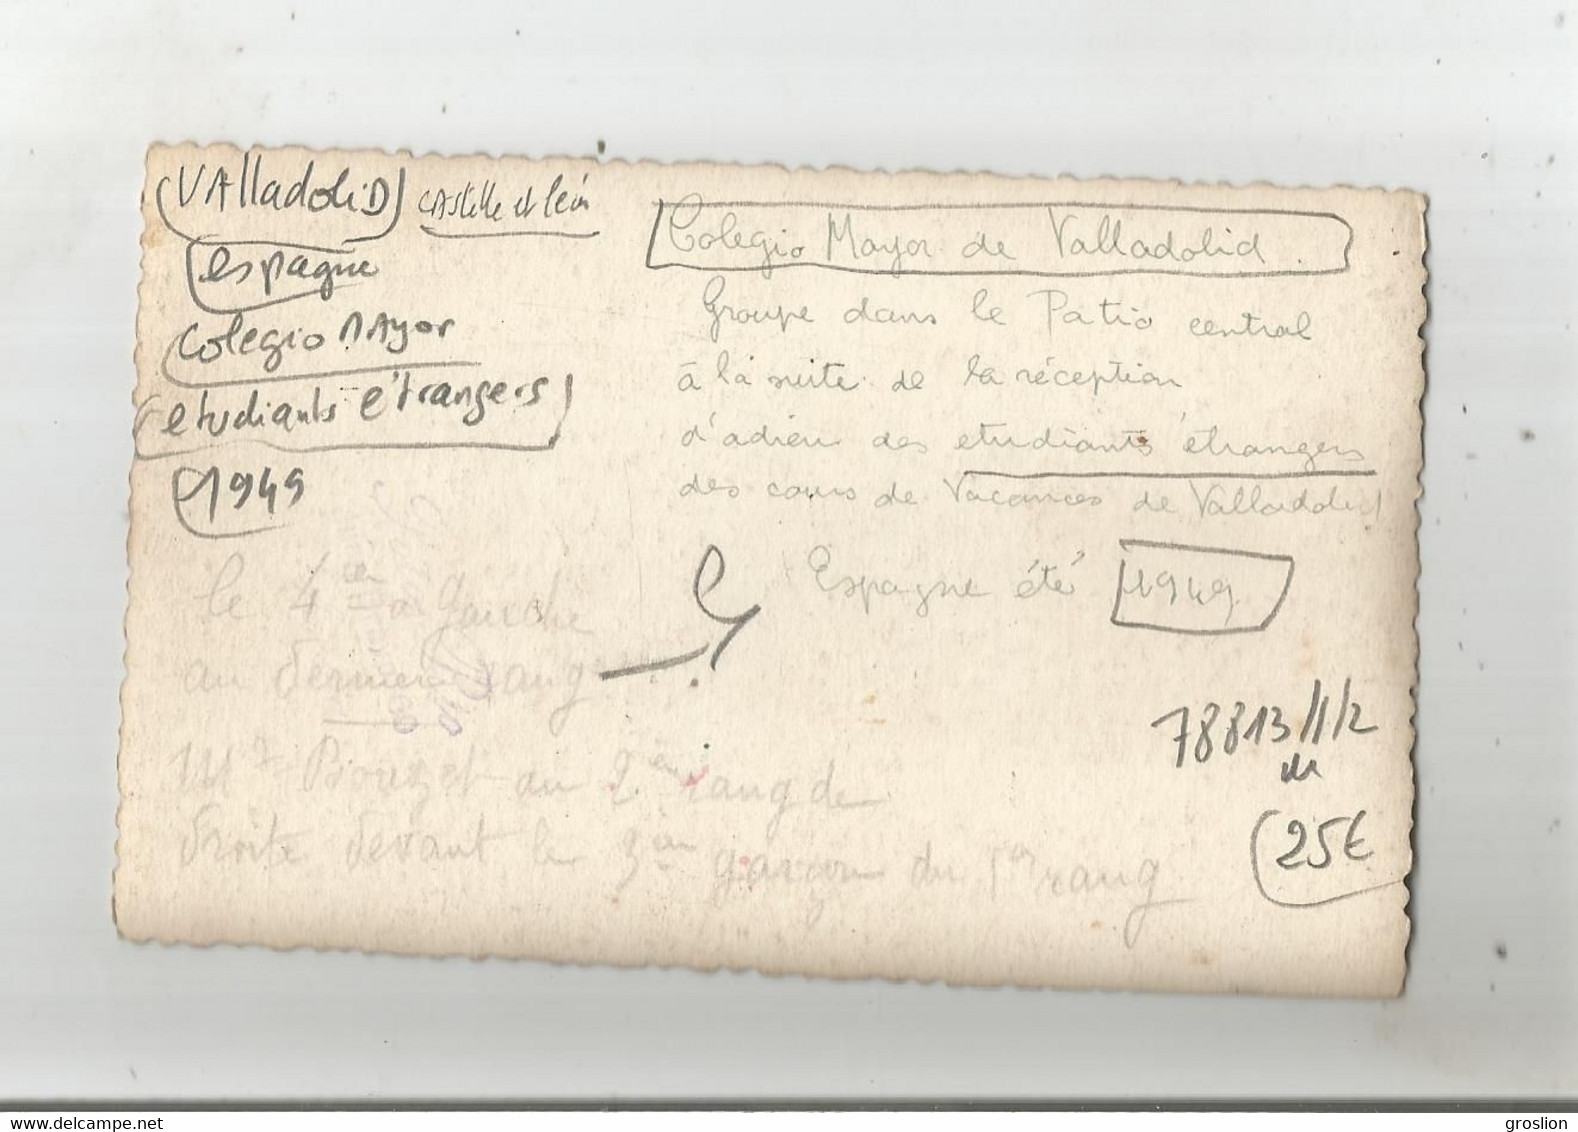 VAlladoliD castille et léon
espagne
colegio MAyor
etudiants étrangers
1949
Colegio Mayor de Valladolid.
Groupe dans le Patio central
à la suite de la réception
d'adieu des etudiants étrangers
des cours de Vacances de Valladolid
Espagne été 1949.
le 4ème à gauche
au dernier rang
Mr Bouzet au 2ème rang de
droite devant le 3ème garçon du 1er rang
78813/1/2
25€
www.delcampe.net
groslion